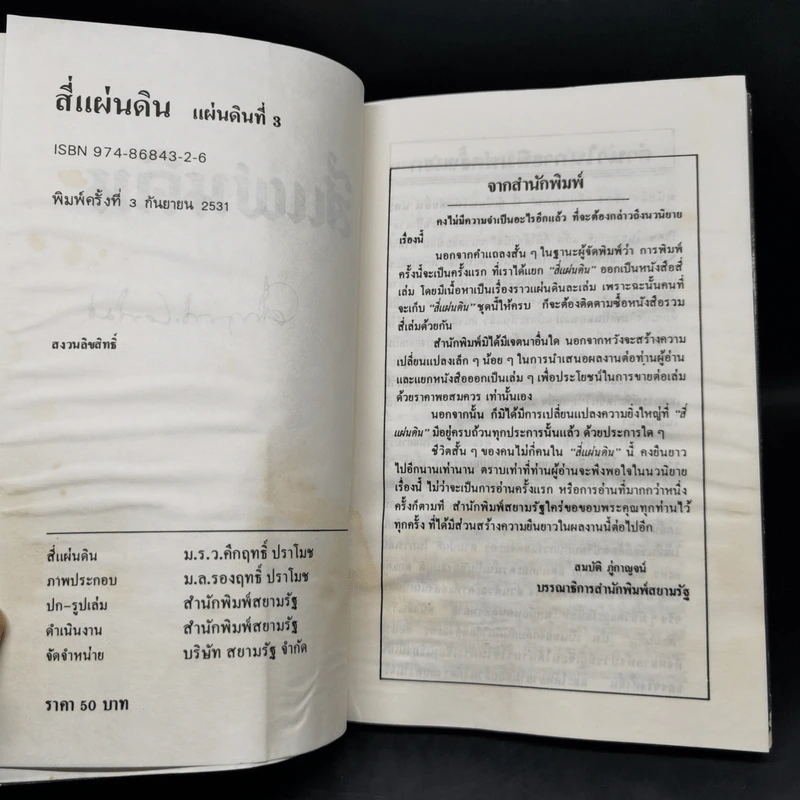 สี่แผ่นดิน แผ่นดินที่ 3
ISBN 974-86843-2-6
พิมพ์ครั้งที่ 3 กันยายน 2531
สงวนลิขสิทธิ์
สี่แผ่นดิน ม.ร.ว.คึกฤทธิ์ ปราโมช
ภาพประกอบ ม.ล.รองฤทธิ์ ปราโมช
ปก-รูปเล่ม สำนักพิมพ์สยามรัฐ
ดำเนินงาน สำนักพิมพ์สยามรัฐ
จัดจำหน่าย บริษัท สยามรัฐ จำกัด
ราคา 50 บาท
จากสำนักพิมพ์
คงไม่มีความจำเป็นอะไรอีกแล้ว ที่จะต้องกล่าวถึงนวนิยาย
เรื่องนี้
นอกจากคำแถลงสั้น ๆ ในฐานะผู้จัดพิมพ์ว่า การพิมพ์
ครั้งนี้จะเป็นครั้งแรก ที่เราได้แยก "สี่แผ่นดิน" ออกเป็นหนังสือสี่
เล่ม โดยมีเนื้อหาเป็นเรื่องราวแผ่นดินละเล่ม เพราะฉะนั้นคนที่
จะเก็บ "สี่แผ่นดิน" ชุดนี้ให้ครบ ก็จะต้องติดตามซื้อหนังสือรวม
สี่เล่มด้วยกัน
สำนักพิมพ์มิได้มีเจตนาอื่นใด นอกจากหวังจะสร้างความ
เปลี่ยนแปลงเล็ก ๆ น้อย ๆ ในการนำเสนอผลงานต่อท่านผู้อ่าน
และแยกหนังสือออกเป็นเล่ม ๆ เพื่อประโยชน์ในการขายต่อเล่ม
ด้วยราคาพอสมควร เท่านั้นเอง
นอกจากนั้น ก็มิได้มีการเปลี่ยนแปลงความยิ่งใหญ่ที่ "สี่
แผ่นดิน" มีอยู่ครบถ้วนทุกประการนั้นแล้ว ด้วยประการใด ๆ
ชีวิตสั้น ๆ ของคนไม่กี่คนใน "สี่แผ่นดิน" นี้ คงยืนยาว
ไปอีกนานเท่านาน ตราบเท่าที่ท่านผู้อ่านจะพึงพอใจในนวนิยาย
เรื่องนี้ ไม่ว่าจะเป็นการอ่านครั้งแรก หรือการอ่านที่มากกว่าหนึ่ง
ครั้งก็ตามที สำนักพิมพ์สยามรัฐใคร่ขอขอบพระคุณทุกท่านไว้
ทุกครั้ง ที่ได้มีส่วนสร้างความยืนยาวในผลงานนี้ต่อไปอีก
สมบัติ ภู่กาญจน์
บรรณาธิการสำนักพิมพ์สยามรัฐ